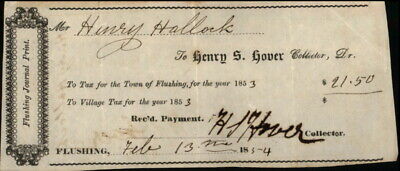 Flushing Journal Print.
Mr Henry Hallock
To Henry S. Hover Collector, Dr.
To Tax for the Town of Flushing, for the year 1853 $ 21.50
To Village Tax for the year 1853 $
Rec'd. Payment. H S Hover Collector.
FLUSHING, Feb 13 1854